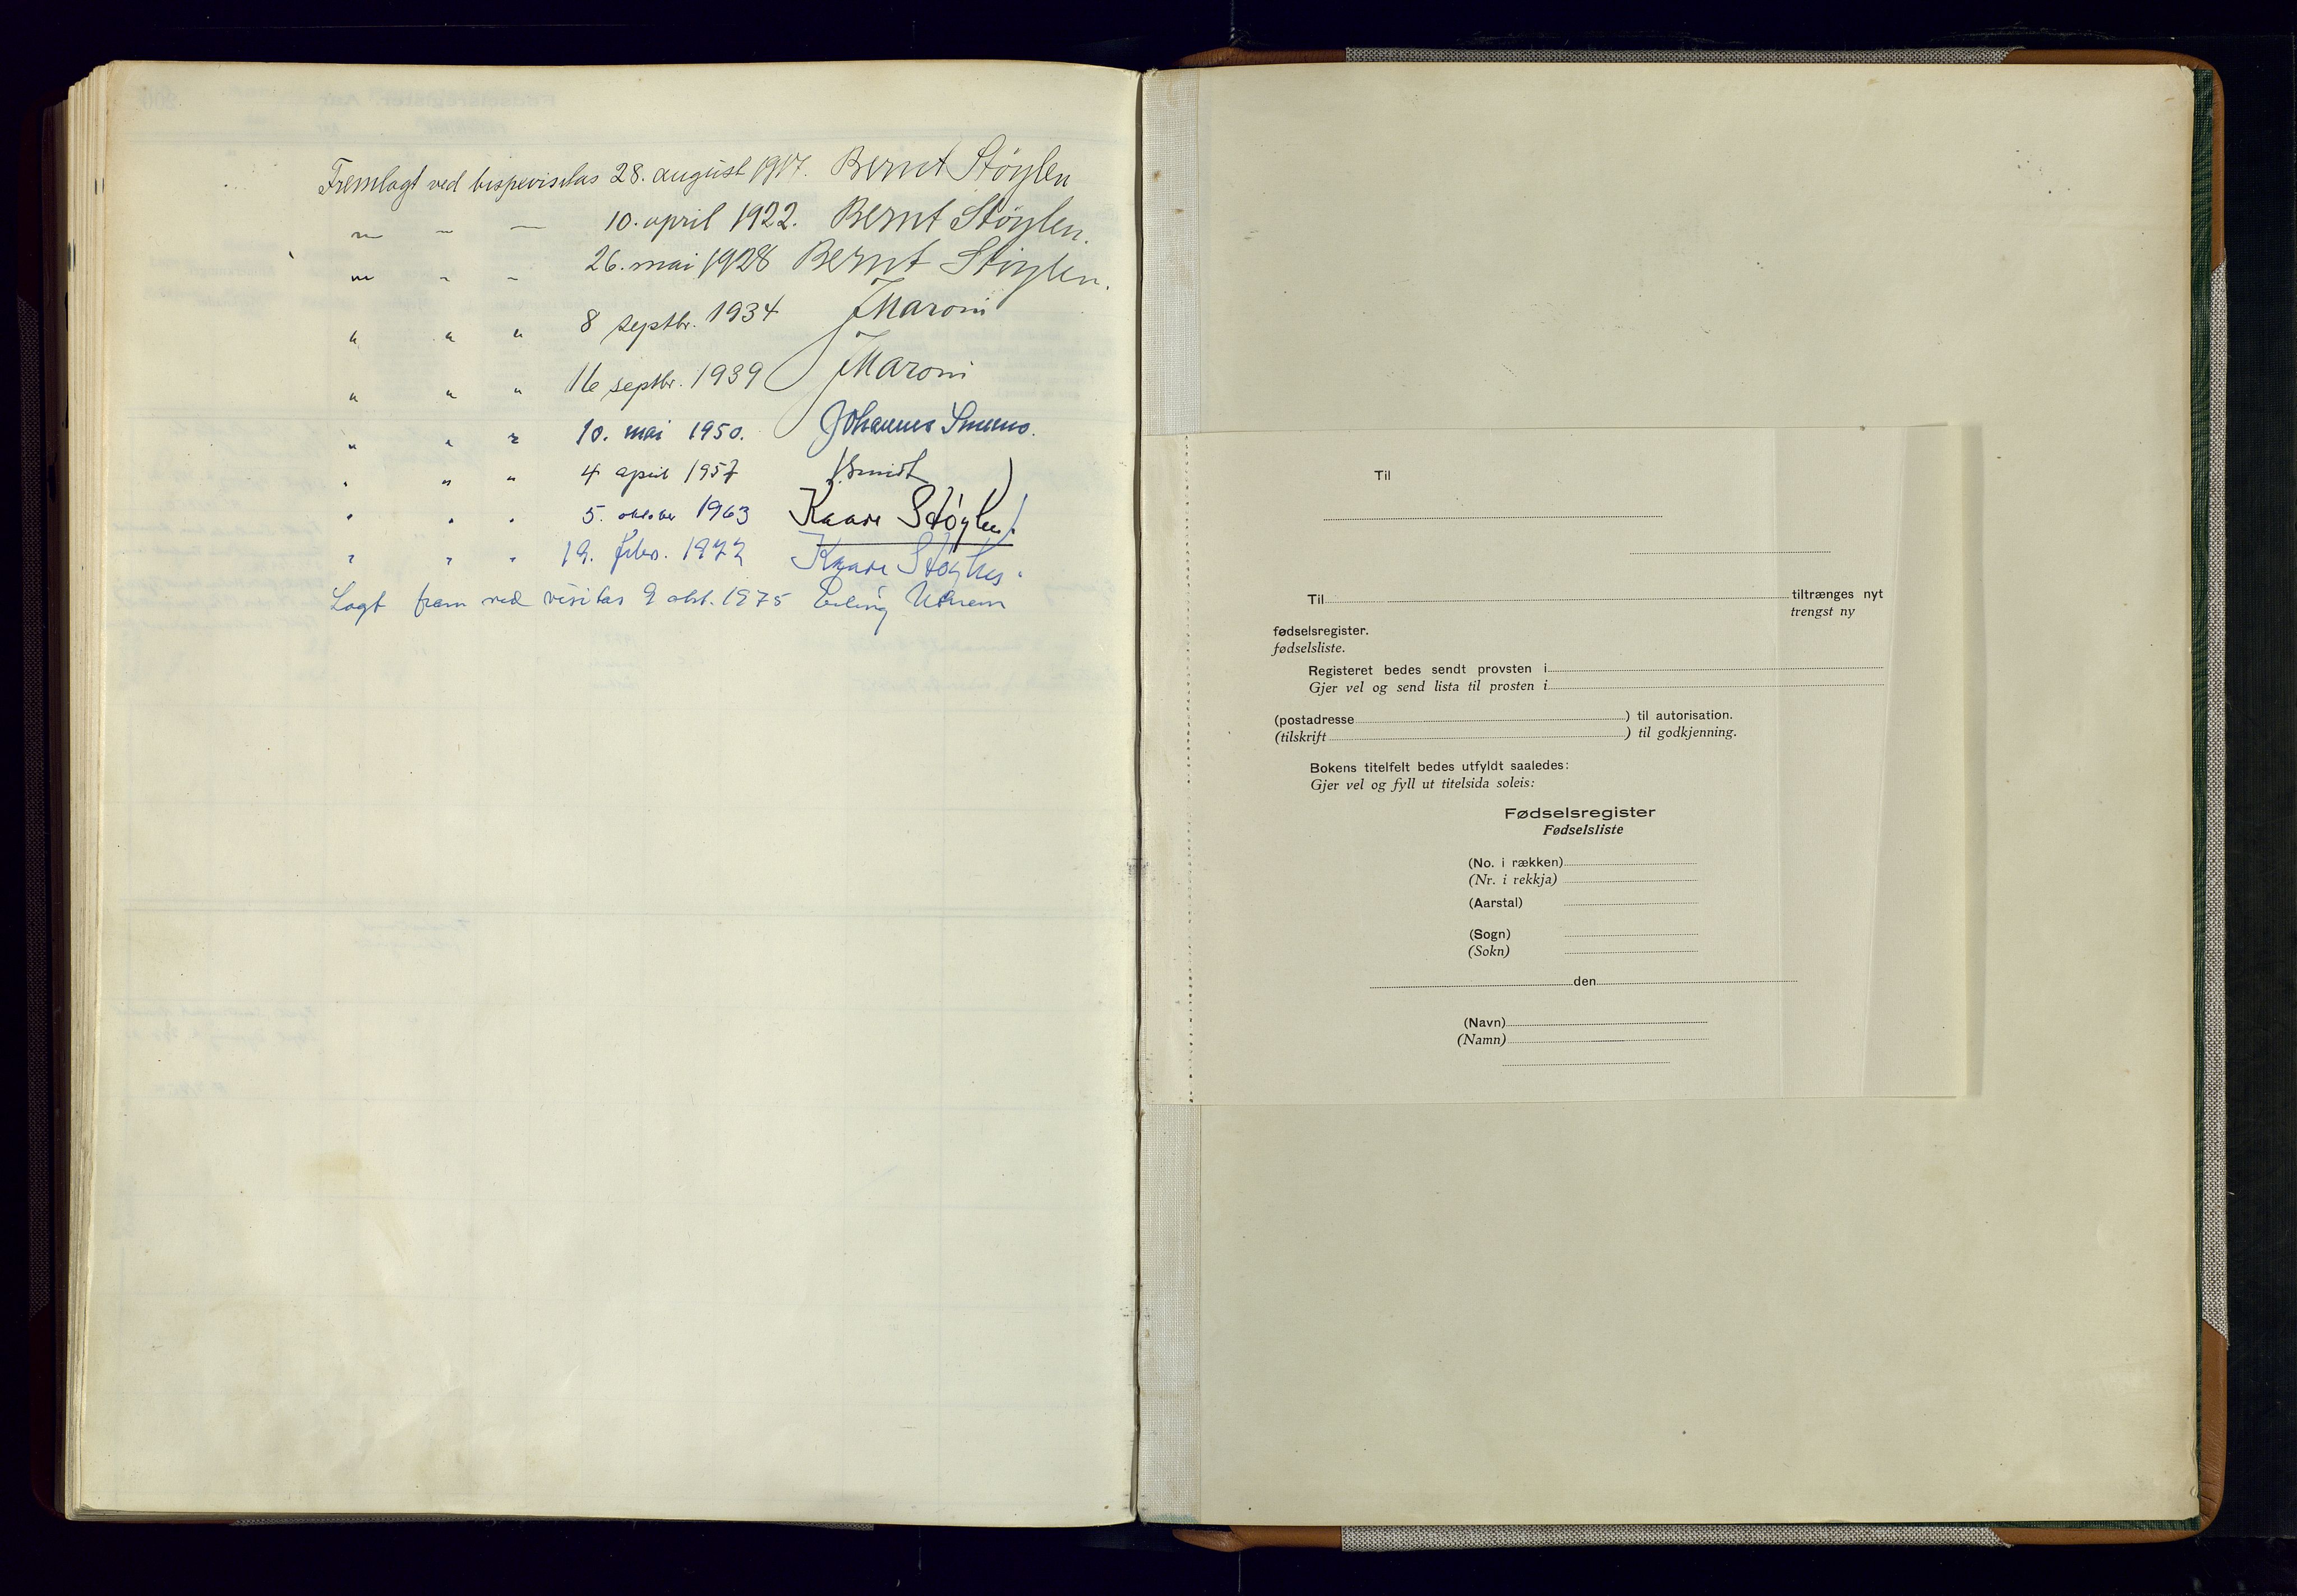 Fremlagt ved bispevisitas 28. august 1917. Bernt Støylen
" " " 10. april 1922. Bernt Støylen.
" " " 26. mai 1928 Bernt Støylen.
" " " 8 septbr. 1934 J Maroni
" " " 16 septbr. 1939 J Maroni
" " " 10. mai 1950. Johannes Smemo.
" " " 4 april 1957 J. Smidt
" " " 5. oktober 1963 Kaare Støylen.
" " " 19. febr. 1972 Kaare Støylen.
Lagt fram ved visitas 9 okt. 1975 Erling Utnem
Til
Til tiltrænges nyt
trengst ny
fødselsregister.
fødselsliste.
Registeret bedes sendt provsten i
Gjer vel og send lista til prosten i
(postadresse ) til autorisation.
(tilskrift ) til godkjenning.
Bokens titelfelt bedes utfyldt saaledes:
Gjer vel og fyll ut titelsida soleis:
Fødselsregister
Fødselsliste
(No. i rækken)
(Nr. i rekkja)
(Aarstal)
(Sogn)
(Sokn)
den
(Navn)
(Namn)